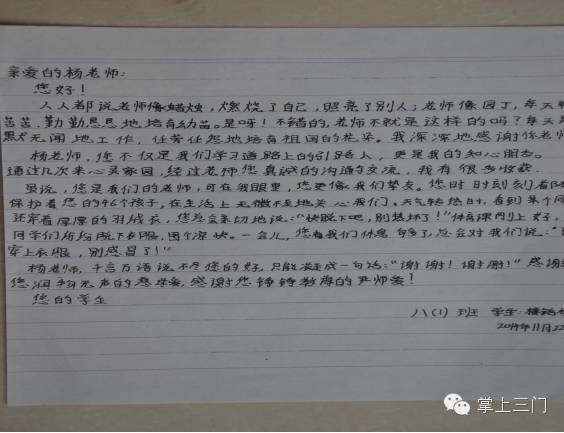 亲爱的杨老师:
您好!
人人都说老师像蜡烛,燃烧了自己,照亮了别人;老师像园丁,每天辛
苦苦、勤勤恳恳地培育幼苗。是呀!不错的,老师不就是这样的吗?每天
默无闻地工作,任劳任怨地培育祖国的花朵。我深深地感谢你老师
杨老师,您不仅是我们学习道路上的引路人,更是我的知心朋友。
通过几次来心灵家园,经过老师您真诚的沟通与交流,我有很多收获.
虽说,您是我们的老师,可在我眼里,您更像我们挚友。您时时刻刻着
保护着您的46个孩子,在生活上无微不至地关心我们。天气转热时,看到某个同
还穿着厚厚的羽绒衣,您总会亲切地说:"快脱下吧,别热坏了!"体育课刚上好,
同学们纷纷脱下衣服,图个凉快。一会儿,您看我们休息够了,总会对我们说:"
穿上衣服,别感冒了!"
杨老师,千言万语说不尽您的好,只能凝成一句话:"谢谢!谢谢!"感谢
您润物无声的,感谢您谆谆教诲的严师爱!
您的学生
八(1)班 学生:
2014年11月22
掌上三门